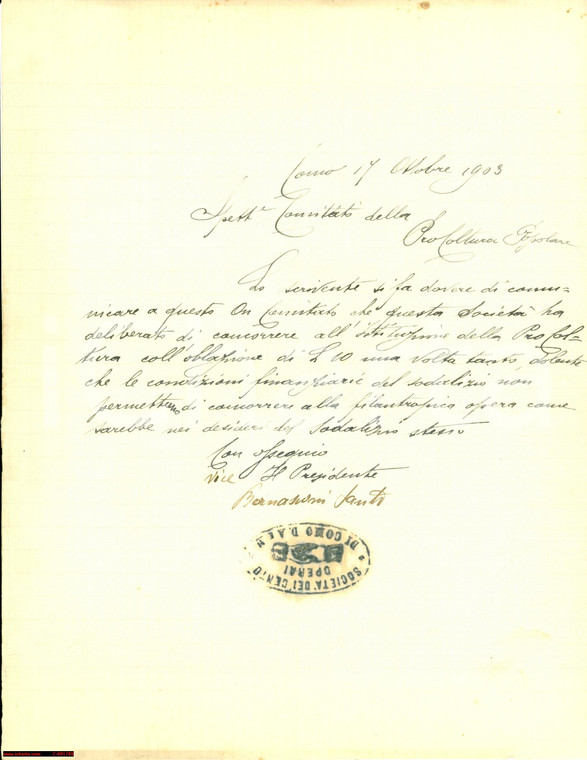 Como 17 Ottobre 1903
Spett.e Comitato della
Pro Coltura Popolare
Lo scrivente si fa dovere di comu-
nicare a questo On Comitato che questa Società ha
deliberato di concorrere all'istituzione della Pro Col-
tura coll'oblazione di L 10 una volta tanto, dolente
che le condizioni finanziarie del sodalizio non
permettono di concorrere alla filantropica opera come
sarebbe nei desideri del Sodalizio stesso
Con ossequio
Vice Il Presidente
Bernasconi Santo
SOCIETÀ DEI CENTO
OPERAI
DI COMO